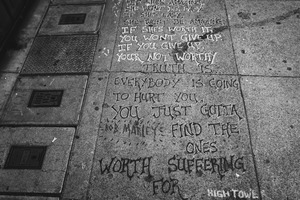 IF SHE'S WORTH IT,
YOU WONT GIVE UP.
IF YOU GIVE UP,
YOUR NOT WORTHY
TRUTH IS,
EVERYBODY IS GOING
TO HURT YOU,
YOU JUST GOTTA
BOB MARLEY FIND THE
ONES
WORTH SUFFERING
FOR
HIGHTOWER